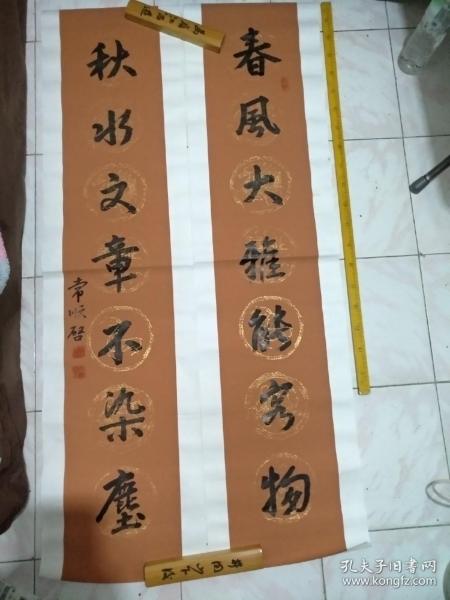 春風大雅能容物
秋水文章不染塵
常順啓
孔夫子旧书网
www.kongfz.com